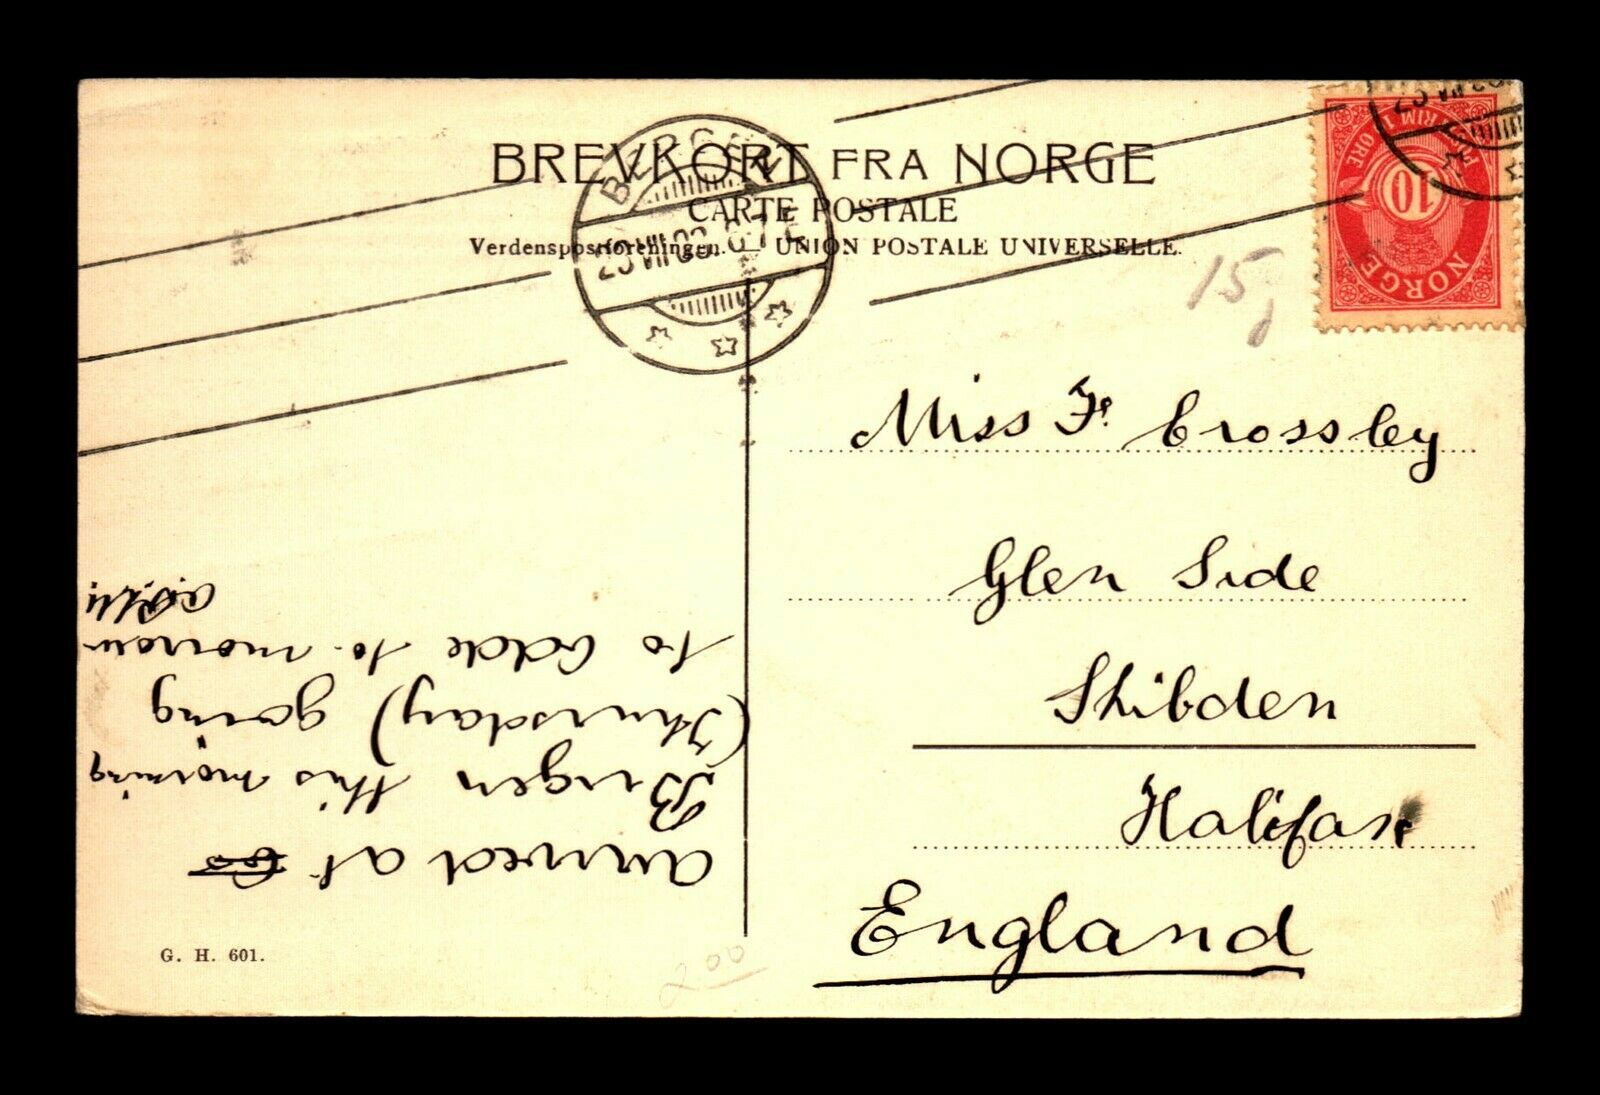 BREVKORT FRA NORGE
CARTE POSTALE
Verdenspostforeningen. — UNION POSTALE UNIVERSELLE.
BERGEN
NORGE
10
15
Miss F. Crossley
Glen Side
Shibden
Halifax
England
arrived at
Bergen this morning
(Thursday) going
to Odde to-morrow
G. H. 601.
2 00